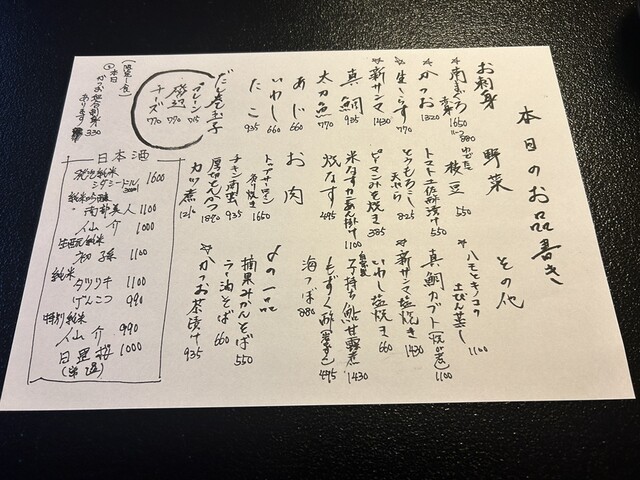 本日のお品書き
お刺身
*南まぐろ 赤身 1650 ハーフ 880
*かつお 1320
*生しらす 770
*新サンマ 1430
真鯛 935
太刀魚 770
あじ 660
いわし 660
たこ 935
だし巻玉子
プレーン 715
明太 770
チーズ 770
(限定1食)
本日
かつお 330
あります
野菜
ゆでたて 枝豆 550
トマト土佐漬け 550
とうもろこし天ぷら 825
ピーマンみそ焼き 385
米なすカニあん掛け 1100
焼なす 495
お肉
トップサーロイン炙り焼き 1650
チキン南蛮 935
厚切とんかつ 1890
カツ煮
その他
*ハモとキノコの土びん蒸し 1100
真鯛カブト(焼or煮) 1100
*新サンマ塩焼き 1430
いわし塩焼き 660
子持ち鮎甘露煮 1430
もずく酢 495
海つぼ 880
〆の一品
摘果みかんそば 550
ラー油そば 660
*かつお茶漬け 935
日本酒
発泡純米
シダシードル 300ml 1600
純米吟醸
南部美人 1100
仙介 1100
生酛純米
初孫 1100
純米
タツリキ 1100
げんこつ 990
特別純米
仙介 990
日置桜 1000